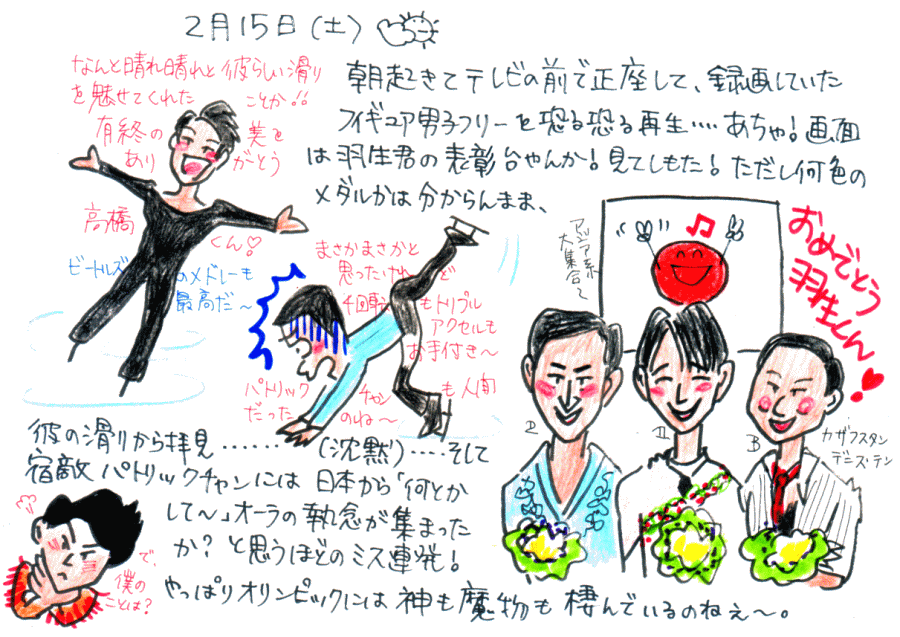 2月15日(土)
なんと晴れ晴れと彼らしい滑り
を魅せてくれた ことか!!
有終の 美を
あり がとう
高橋
くん♡
ビートルズ
のメドレーも
最高だ〜
朝起きてテレビの前で正座して、録画していた
フィギュア男子フリーを恐る恐る再生‥‥あちゃ!画面
は羽生君の表彰台やんか!見てしもた!ただし何色の
メダルかは分からんまま、
まさかまさかと
思ったけんど
4回転もトリプル
アクセルも
お手付き〜
パトリック チャン も人間
だった のね〜
アジア系
大集合〜
♫
おめでとう
羽生くん!
カザフスタン
デニス・テン
彼の滑りから拝見‥‥‥‥(沈黙)‥‥そして
宿敵パトリックチャンには日本から「何とか
して〜」オーラの執念が集まった
か?と思うほどのミス連発!
やっぱりオリンピックには神も魔物も棲んでいるのねぇ〜。
で、
僕の
ことは?